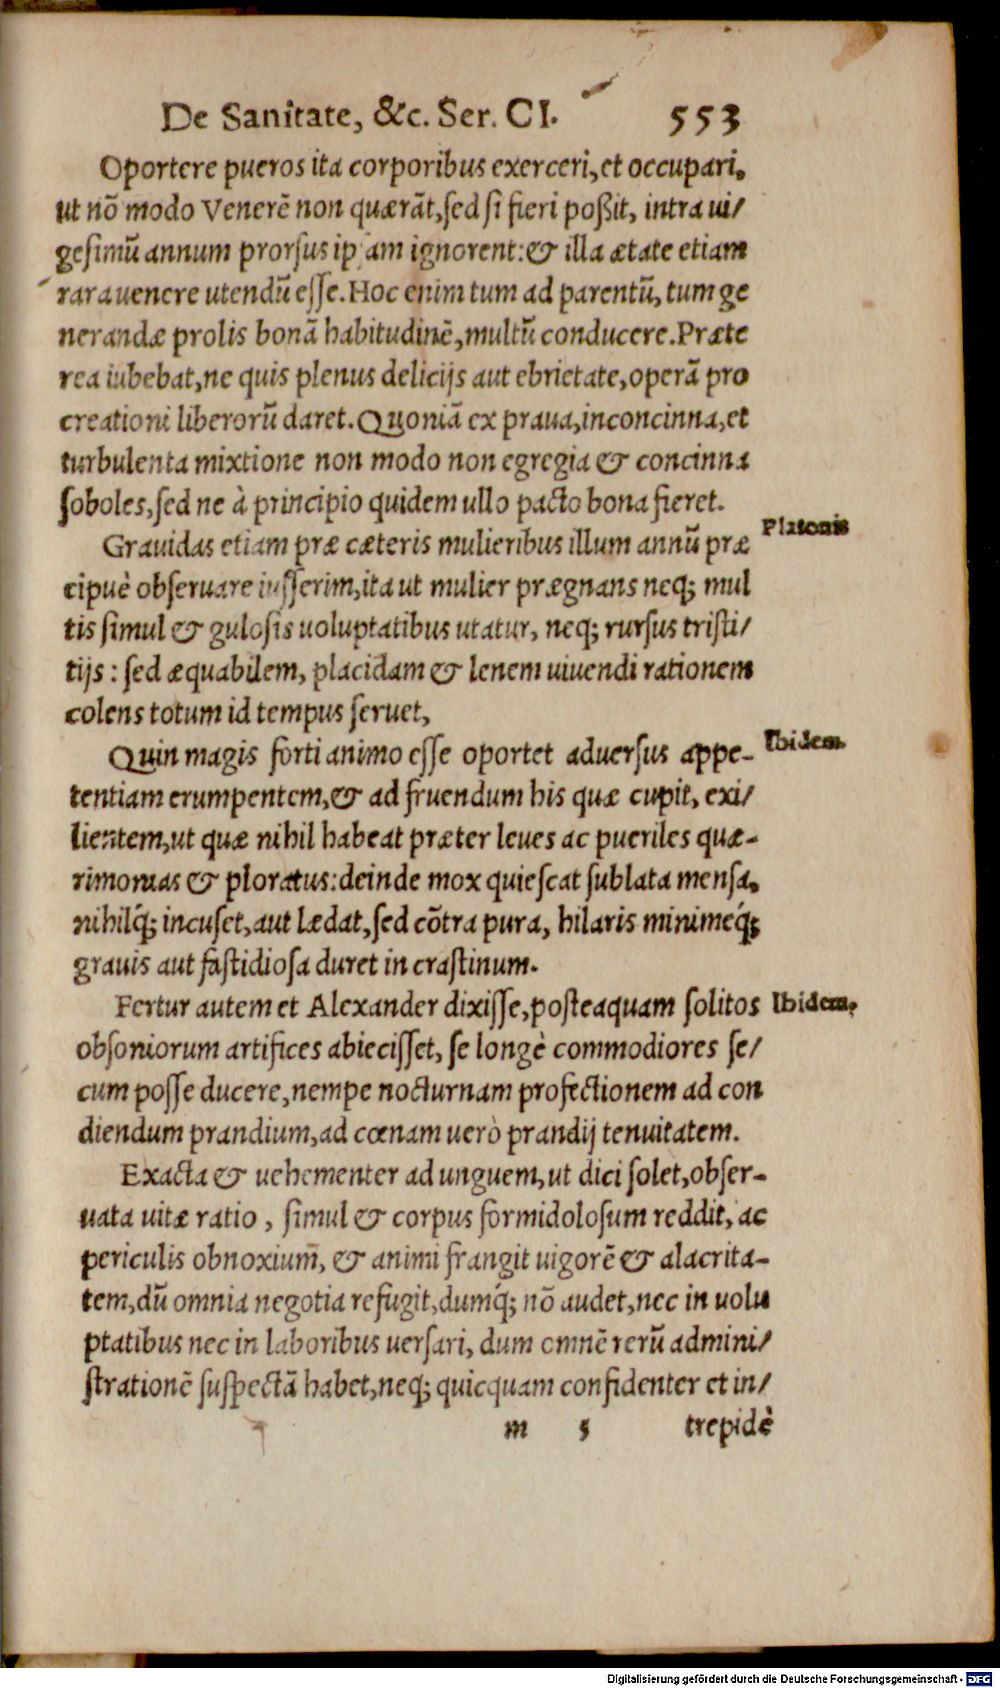 De Sanitate, &c. Ser. CI. 553
Oportere pueros ita corporibus exerceri, et occupari,
ut nō modo Venerē non quærāt, sed si fieri poßit, intra ui/
gesimū annum prorsus ipsam ignorent: & illa ætate etiam
rara uenere utendū esse. Hoc enim tum ad parentū, tum ge
nerandæ prolis bonā habitudinē, multū conducere. Præte
rea iubebat, ne quis plenus delicijs aut ebrietate, operā pro
creationi liberorū daret. Quoniā ex praua, inconcinna, et
turbulenta mixtione non modo non egregia & concinna
soboles, sed ne à principio quidem ullo pacto bona fieret.
Platonis
Grauidas etiam præ cæteris mulieribus illum annū præ
cipuè obseruare iusserim, ita ut mulier prægnans neq; mul
tis simul & gulosis uoluptatibus utatur, neq; rursus tristi/
tijs: sed æquabilem, placidam & lenem uiuendi rationem
colens totum id tempus seruet,
Ibidem.
Quin magis forti animo esse oportet aduersus appe-
tentiam erumpentem, & ad fruendum his quæ cupit, exi/
lientem, ut quæ nihil habeat præter leues ac pueriles quæ-
rimonias & ploratus: deinde mox quiescat sublata mensa,
nihilq́; incuset, aut lædat, sed cōtra pura, hilaris minimeq́;
grauis aut fastidiosa duret in crastinum.
Fertur autem et Alexander dixisse, posteaquam solitos
Ibidem.
obsoniorum artifices abiecisset, se longè commodiores se/
cum posse ducere, nempe nocturnam profectionem ad con
diendum prandium, ad cœnam uerò prandij tenuitatem.
Exacta & uehementer ad unguem, ut dici solet, obser-
uata uitæ ratio, simul & corpus formidolosum reddit, ac
periculis obnoxium, & animi frangit uigorē & alacrita-
tem, dū omnia negotia refugit, dumq́; nō audet, nec in uolu
ptatibus nec in laboribus uersari, dum omnē rerū admini/
strationē suspectā habet, neq; quicquam confidenter et in/
m 5 trepidè
Digitalisierung gefördert durch die Deutsche Forschungsgemeinschaft - DFG